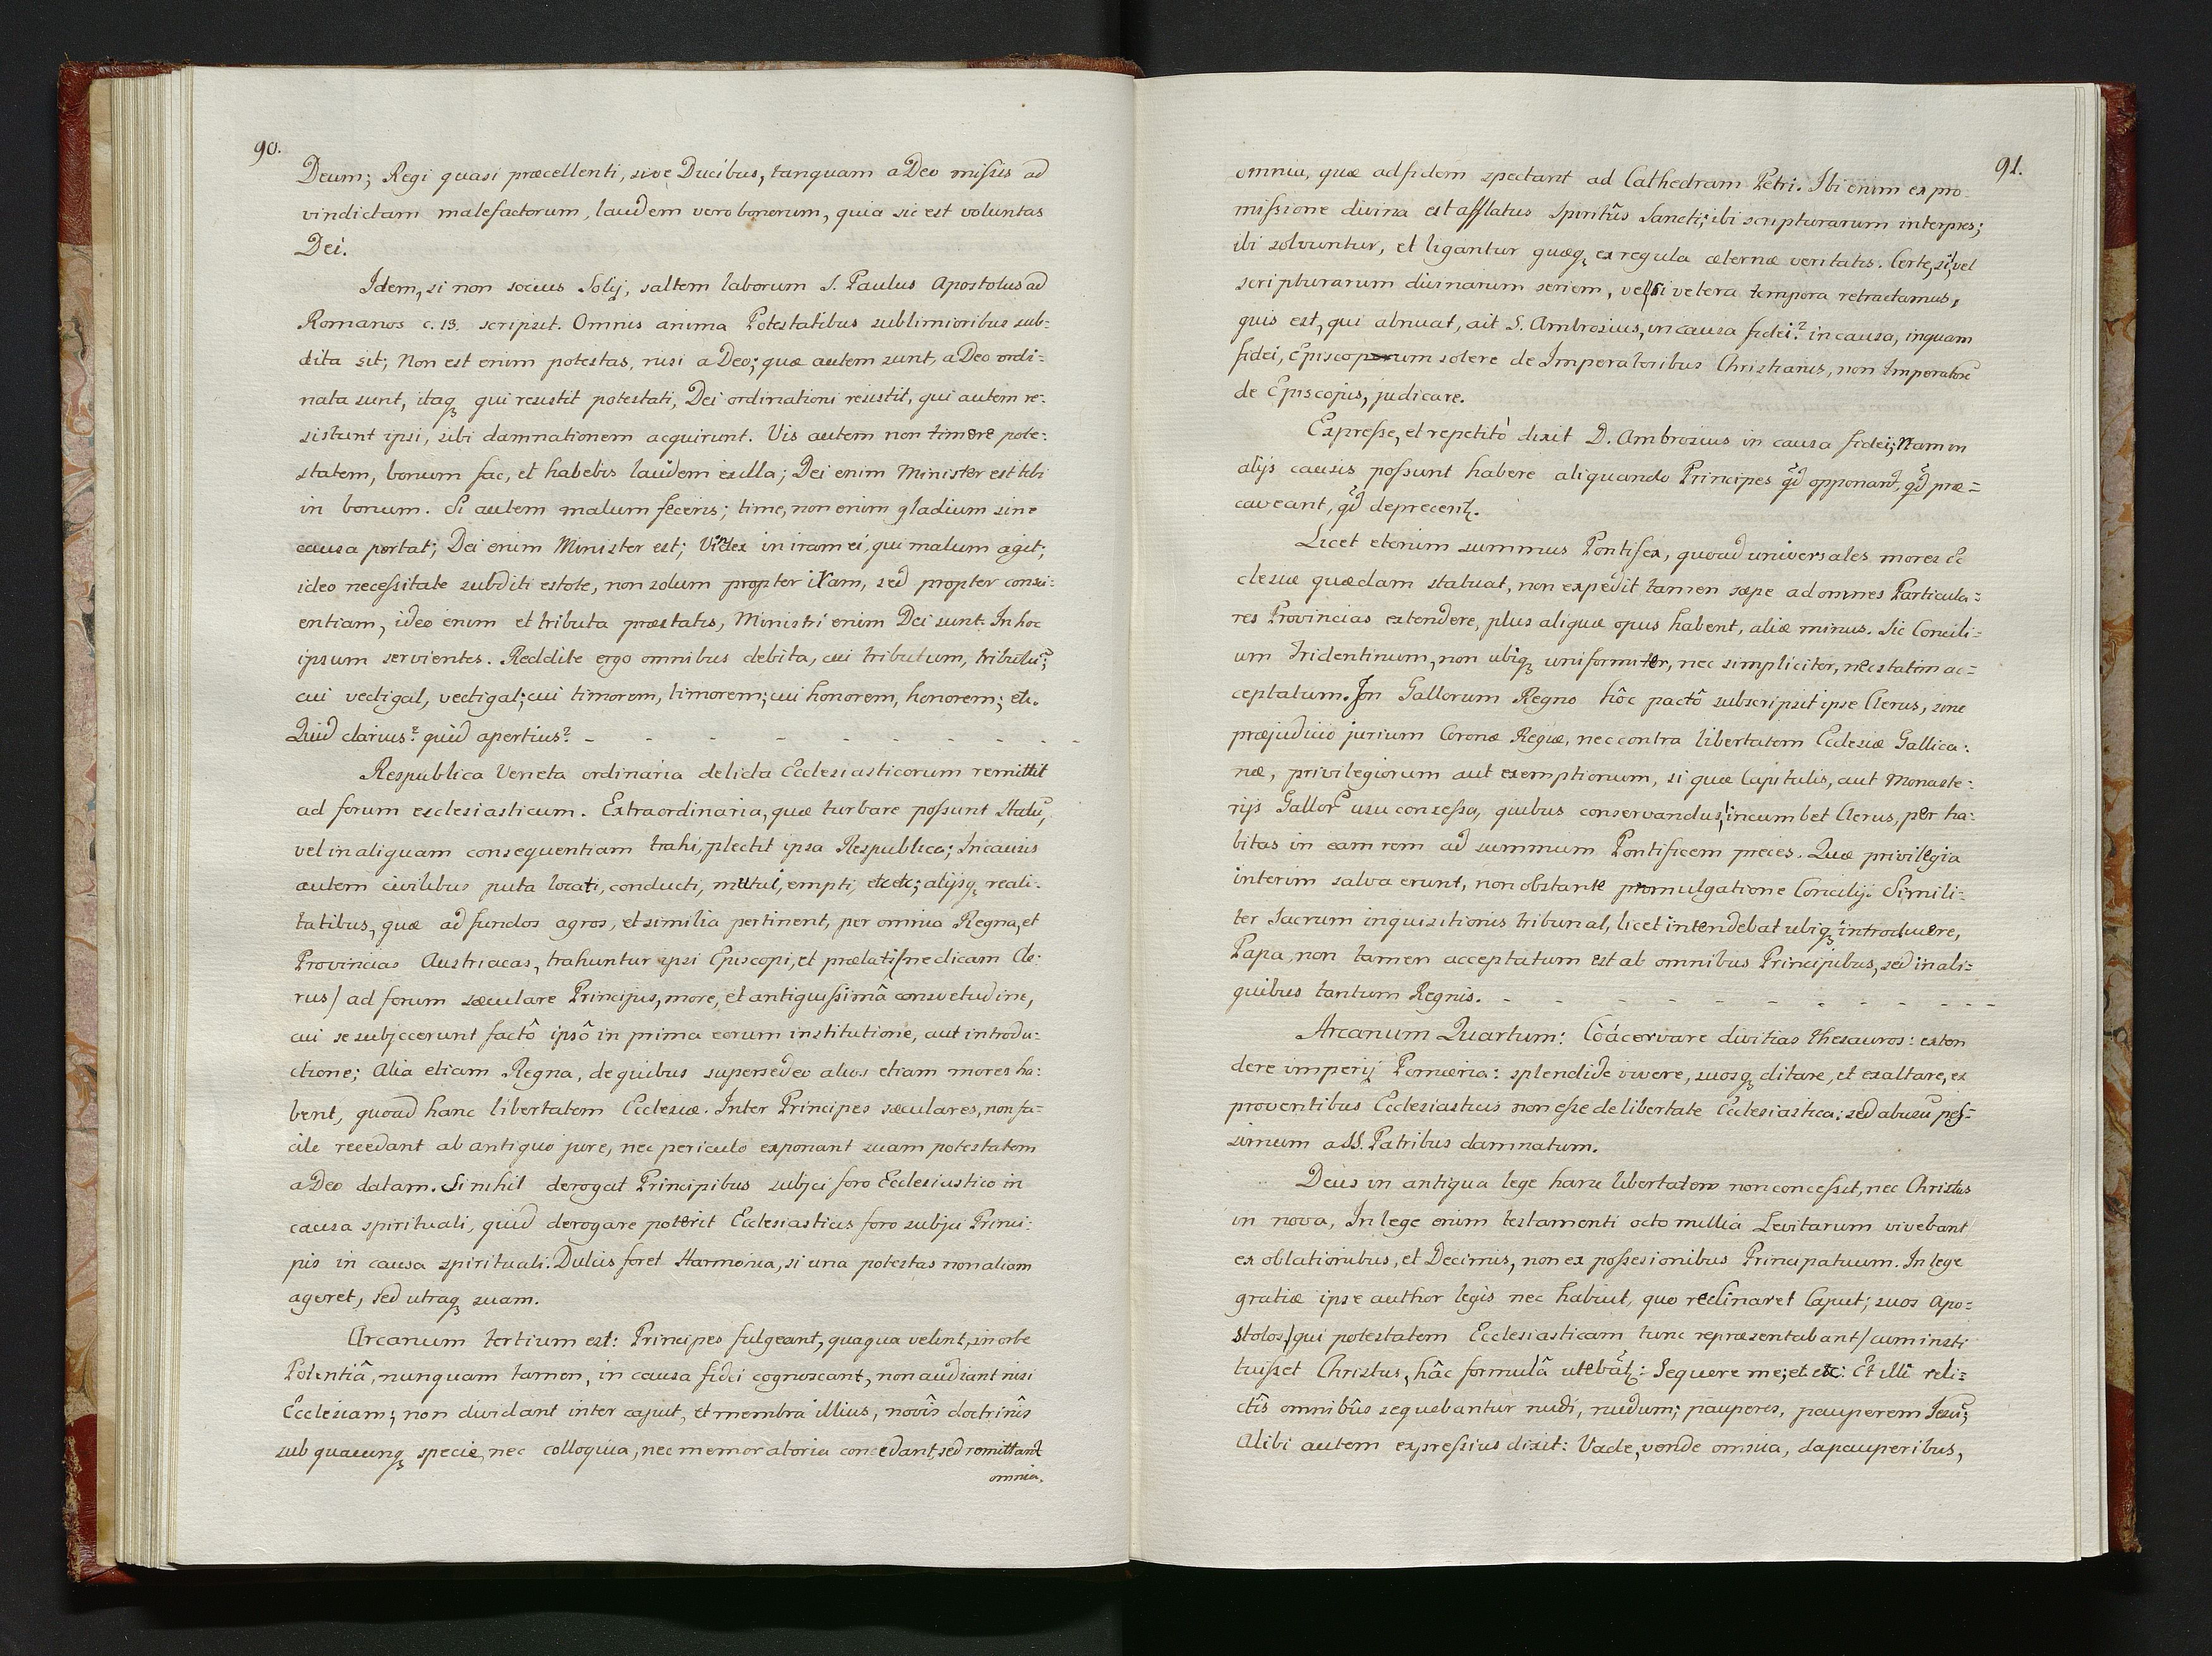 90.
Deum; Regi quasi præcellenti, sive Ducibus, tanquam a Deo missis ad
vindictam malefactorum, laudem vero bonorum, quia sic est voluntas
Dei.
Idem, si non socius Solij, saltem laborum S. Paulus Apostolus ad
Romanos c. 13. scripsit. Omnis anima Potestatibus sublimioribus sub:
dita sit; Non est enim potestas, nisi a Deo; quæ autem sunt, a Deo ordi=
nata sunt, itaqꝫ qui resistit potestati, Dei ordinationi resistit, qui autem re:
sistunt ipsi, sibi damnationem acquirunt. Vis autem non timere pote:
statem, bonum fac, et habebis laudem ex illa; Dei enim Minister est tibi
in bonum. Si autem malum feceris; time, non enim gladium sine
causa portat; Dei enim Minister est; Vindex in iram ei, qui malum agit;
ideo necessitate subditi estote, non solum propter iram, sed propter consci:
entiam, ideo enim et tributa præstatis, Ministri enim Dei sunt. In hoc
ipsum servientes. Reddite ergo omnibus debita, cui tributum, tributũ;
cui vectigal, vectigal; cui timorem, timorem; cui honorem, honorem; etc.
Quid clarius? quid apertius? - - - - - - - - - - -
Respublica Veneta ordinaria delicta Ecclesiasticorum remittit
ad forum ecclesiasticum. Extraordinaria, quæ turbare possunt Statũ,
vel in aliquam consequentiam trahi, plectit ipsa Respublica; In causis
autem civilibus puta locati, conducti, mutui, empti, etc etc; alijsqꝫ reali:
tatibus, quæ ad fundos agros, et similia pertinent, per omnia Regna, et
Provincias Austriacas, trahuntur ipsi Episcopi, et prælati /: ne dicam Cle:
rus / ad forum sæculare Principis, more, et antiquissimâ consvetudine,
cui se subjecerunt factô ipsô in prima eorum institutione, aut introdu:
ctione; Alia etiam Regna, de quibus supersedeo alios etiam mores ha:
bent, quoad hanc libertatem Ecclesiæ. Inter Principes sæculares, non fa=
cile recedant ab antiquo jure, nec periculo exponant suam potestatem
a Deo datam. Si nihil derogat Principibus subjici foro Ecclesiastico in
causa spirituali, quid derogare poterit Ecclesiasticis foro subjici Princi:
pis in causa spirituali. Dulcis foret Harmonia, si una potestas non aliam
ageret, sed utraqꝫ suam.
Arcanum tertium est: Principes fulgeant, quaqua velint, in orbe
Potentiâ, nunquam tamen, in causa fidei cognoscant, non audiant nisi
Ecclesiam; non dividant inter caput, et membra illius, novîs doctrinîs
sub quacunqꝫ specie, nec colloquia, nec memoratoria concedant, sed remittant
omnia.
91.
omnia, quæ ad fidem spectant ad Cathedram Petri. Ibi enim ex pro
missione divina est afflatus Spiritûs Sancti; ibi scripturarum interpres;
ibi solvuntur, et ligantur quæqꝫ ex regula æternæ veritatis. Certe, si, vel
scripturarum divinarum seriem, vel si vetera tempora retractamus,
quis est, qui abnuat, ait S. Ambrosius, in causa fidei? in causa, inquam
fidei, Episcoporum solere de Imperatoribus Christianis, non Imperatorẽ
de Episcopis, judicare.
Expresse, et repetitò dixit D. Ambrosius in causa fidei; Nam in
alijs causis possunt habere aliquando Principes qd̃ opponant, qd̃ præ=
caveant, qd̃ deprecentꝫ.
Licet etenim summus Pontifex, quoad universales mores Ec
clesiæ quædam statuat, non expedit tamen sæpe ad omnes Particula:
res Provincias extendere, plus aliquæ opus habent, aliæ minus. Sic Concili=
um Tridentinum, non ubiqꝫ uniformiter, nec simpliciter, nec statim ac=
ceptatum. In Gallorum Regno hôc pactô subscripsit ipse Clerus, sine
præjudicio jurium Coronæ Regiæ, nec contra libertatem Ecclesiæ Gallica:
næ, privilegiorum aut exemptionum, si quæ Capitulis, aut Monaste:
rijs Gallorũ usu concessa, quibus conservandis, incumbet Clerus, per ha:
bitas in eam rem ad summum Pontificem preces. Quæ privilegia
interim salva erunt, non obstante promulgatione Concilij. Simili=
ter Sacrum inquisitionis tribunal, licet intendebat ubiqꝫ introducere,
Papa, non tamen acceptatum est ab omnibus Principibus, sed in ali=
quibus tantum Regnis. - - - - - - - - - - -
Arcanum Quartum: Coácervare divitias thesauros: exten
dere imperij Pomœria: splendide vivere, suosqꝫ ditare, et exaltare, ex
proventibus Ecclesiasticis non esse de libertate Ecclesiastica: sed abusũ pes=
simum a SS. Patribus damnatum.
Deus in antiqua lege hanc libertatem non concessit, nec Christus
in nova, In lege enim testamenti octo millia Levitarum vivebant
ex oblationibus, et Decimis, non ex possesionibus Principatuum. In lege
gratiæ ipse author legis nec habuit, quo reclinaret Caput; suos Apo=
stolos / qui potestatem Ecclesiasticam tunc repræsentabant / cum insti
tuisset Christus, hâc formulâ utebãtꝫ: Sequere me; et etc: Et illi reli=
ctîs omnibûs sequebantur nudi, nudum; pauperes, pauperem Jesũ;
Alibi autem expressius dixit: Vade, vende omnia, da pauperibus,